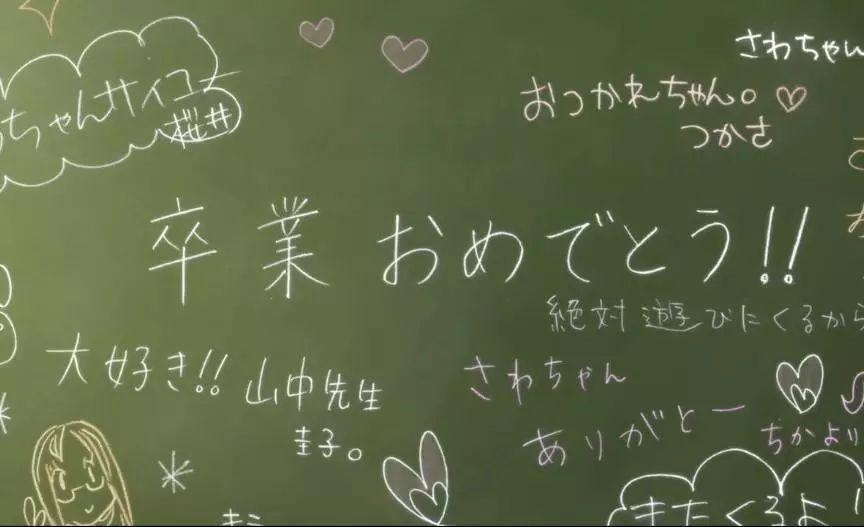 さわちゃん
おつかれちゃん。
つかさ
ちゃんサイコー
桜井
卒業おめでとう!!
絶対遊びにくるから
大好き!!山中先生
圭子。
さわちゃん
ありがとー
ちかより
またくるよ